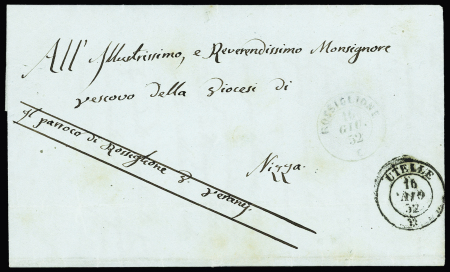 All' Illustrissimo, e Reverendissimo Monsignore
vescovo della Diocesi di
Nizza.
Il parroco di Rossiglione
ROSSIGLIONE
GIU.
52
UTELLE
16
52